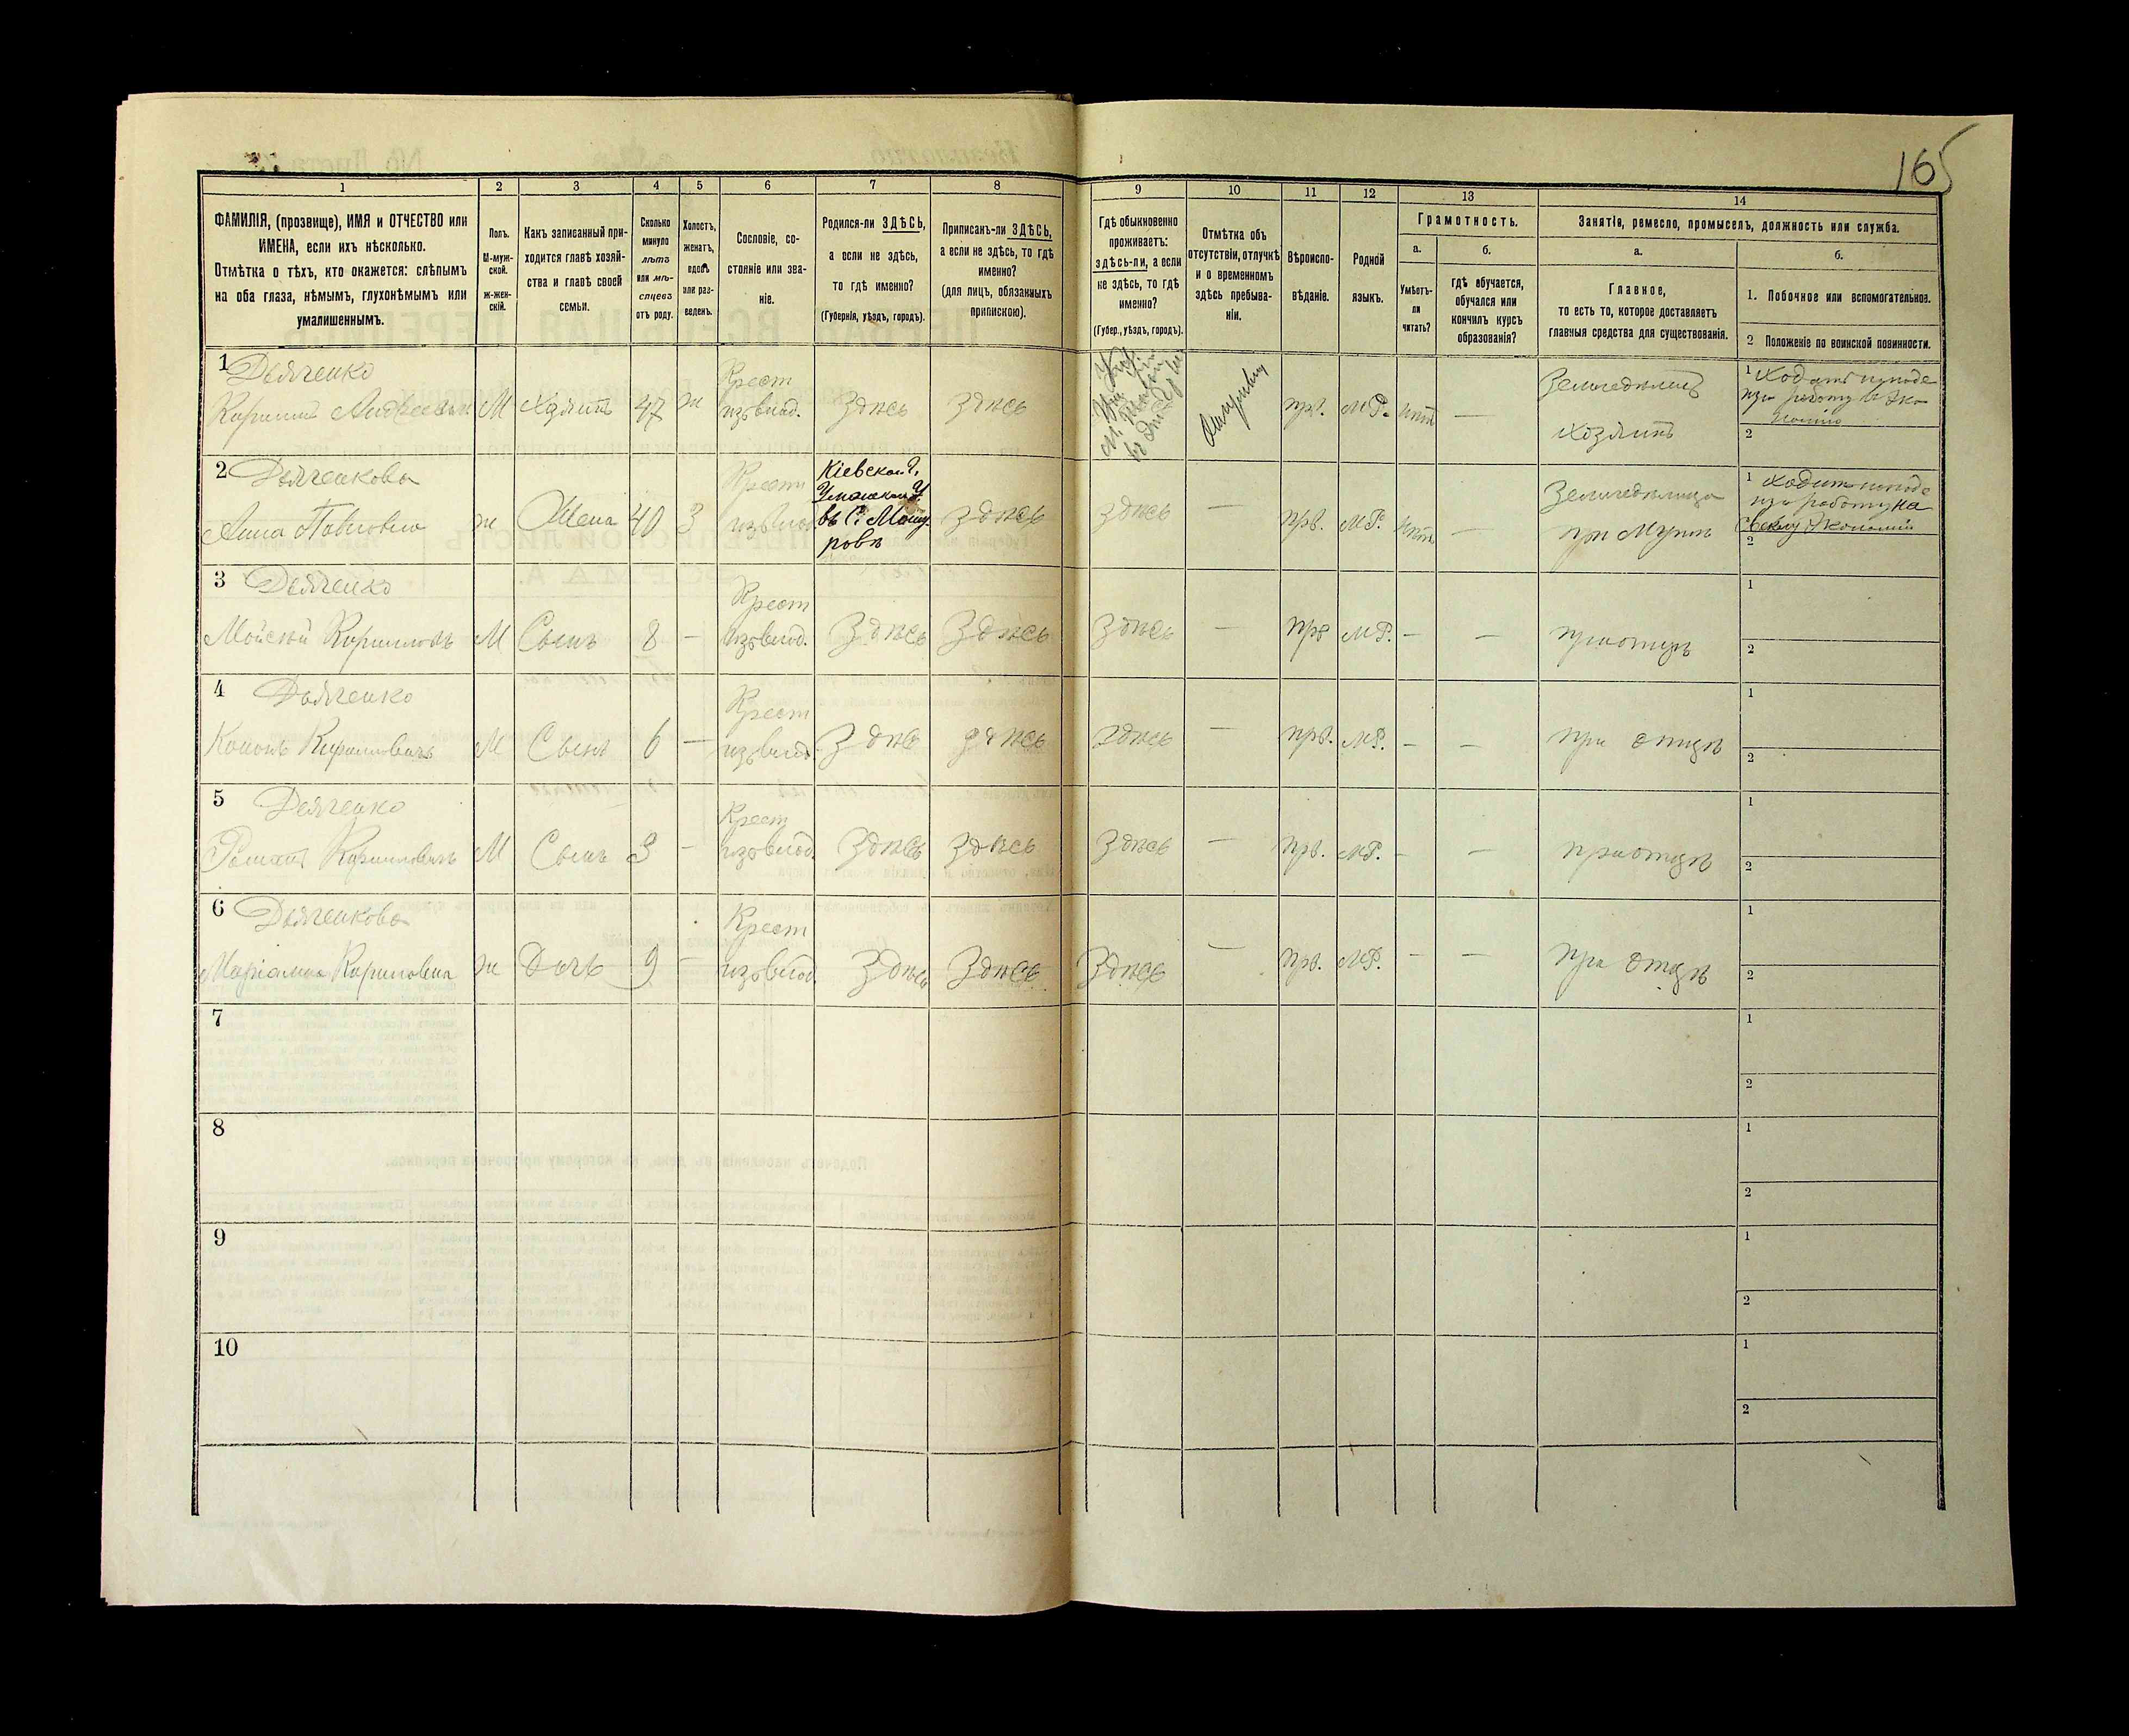 165
1 2 3 4 5 6 7 8 9 10 11 12 13 14
ФАМИЛІЯ, (прозвище), ИМЯ и ОТЧЕСТВО или
ИМЕНА, если ихъ нѣсколько.
Отмѣтка о тѣхъ, кто окажется: слѣпымъ
на оба глаза, нѣмымъ, глухонѣмымъ или
умалишеннымъ.
Полъ.
М-муж-
ской.
ж-жен-
скій.
Какъ записанный при-
ходится главѣ хозяй-
ства и главѣ своей
семьи.
Сколько
минуло
лѣтъ
или мѣ-
сяцевъ
отъ роду.
Холостъ,
женатъ,
вдовъ
или раз-
веденъ.
Сословіе, со-
стояніе или зва-
ніе.
Родился-ли ЗДѢСЬ,
а если не здѣсь,
то гдѣ именно?
(Губернія, уѣздъ, городъ).
Приписанъ-ли ЗДѢСЬ,
а если не здѣсь, то гдѣ
именно?
(для лицъ, обязанныхъ
припискою).
Гдѣ обыкновенно
проживаетъ:
здѣсь-ли, а если
не здѣсь, то гдѣ
именно?
(Губер., уѣздъ, городъ).
Отмѣтка объ
отсутствіи, отлучкѣ
и о временномъ
здѣсь пребыва-
ніи.
Вѣроиспо-
вѣданіе.
Родной
языкъ.
Грамотность.
а.
Умѣетъ-
ли
читать?
б.
гдѣ обучается,
обучался или
кончилъ курсъ
образованія?
Занятія, ремесло, промыселъ, должность или служба.
а.
Главное,
то есть то, которое доставляетъ
главныя средства для существованія.
б.
1. Побочное или вспомогательное.
2 Положеніе по воинской повинности.
1 Дьяченко
Крест
Земледѣлецъ
М 47 ж
изъ влад. Здѣсь Здѣсь
прв. М.Р. нѣтъ —
хозяинъ
2
2 Дьяченкова
Крест
Кіевской г.
Уманскаго У.
въ С. Машу
ровѣ
Земледѣлица
Анна Павловна ж Жена 40 З Здѣсь Здѣсь — прв. М.Р. нѣтъ —
при Мужѣ
2
3 Дьяченко
Крест
М Сынъ 8 — изъ влад. Здѣсь Здѣсь Здѣсь — прв М.Р. — — при отцѣ
1
2
4 Дьяченко
Крест
Кононъ Кириловичъ М Сынъ 6 — изъ влад. Здѣсь здѣсь здѣсь — прв. М.Р. — — при отцѣ
1
2
5 Дьяченко
Крест
Романъ Кириловичъ М Сынъ 3 — изъ влад. Здѣсь Здѣсь Здѣсь — прв. М.Р. — — при отцѣ
1
2
6 Дьяченкова
Крест
Маріанна Кириловна ж Дочь 9 — изъ влад. Здѣсь Здѣсь Здѣсь — прв. М.Р. — — при отцѣ
1
2
7
1
2
8
1
2
9
1
2
10
1
2